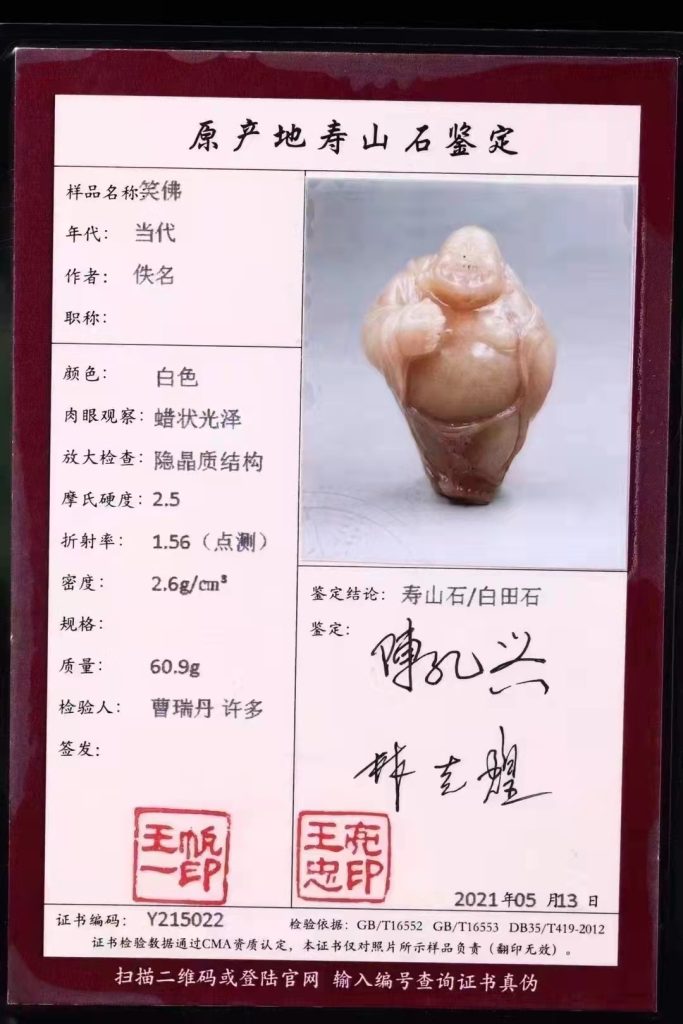 原产地寿山石鉴定
样品名称笑佛
年代： 当代
作者： 佚名
职称：
颜色： 白色
肉眼观察：蜡状光泽
放大检查：隐晶质结构
摩氏硬度：2.5
折射率： 1.56（点测）
密度： 2.6g/cm³
规格：
质量： 60.9g
检验人： 曹瑞丹 许多
签发：
王帆一印
鉴定结论： 寿山石/白田石
鉴定：
陳孔兴
林克煌
王亮忠印
2021年05月13日
证书编码： Y215022 检验依据：GB/T16552 GB/T16553 DB35/T419-2012
证书检验数据通过CMA资质认定，本证书仅对照片所示样品负责（翻印无效）。
扫描二维码或登陆官网 输入编号查询证书真伪